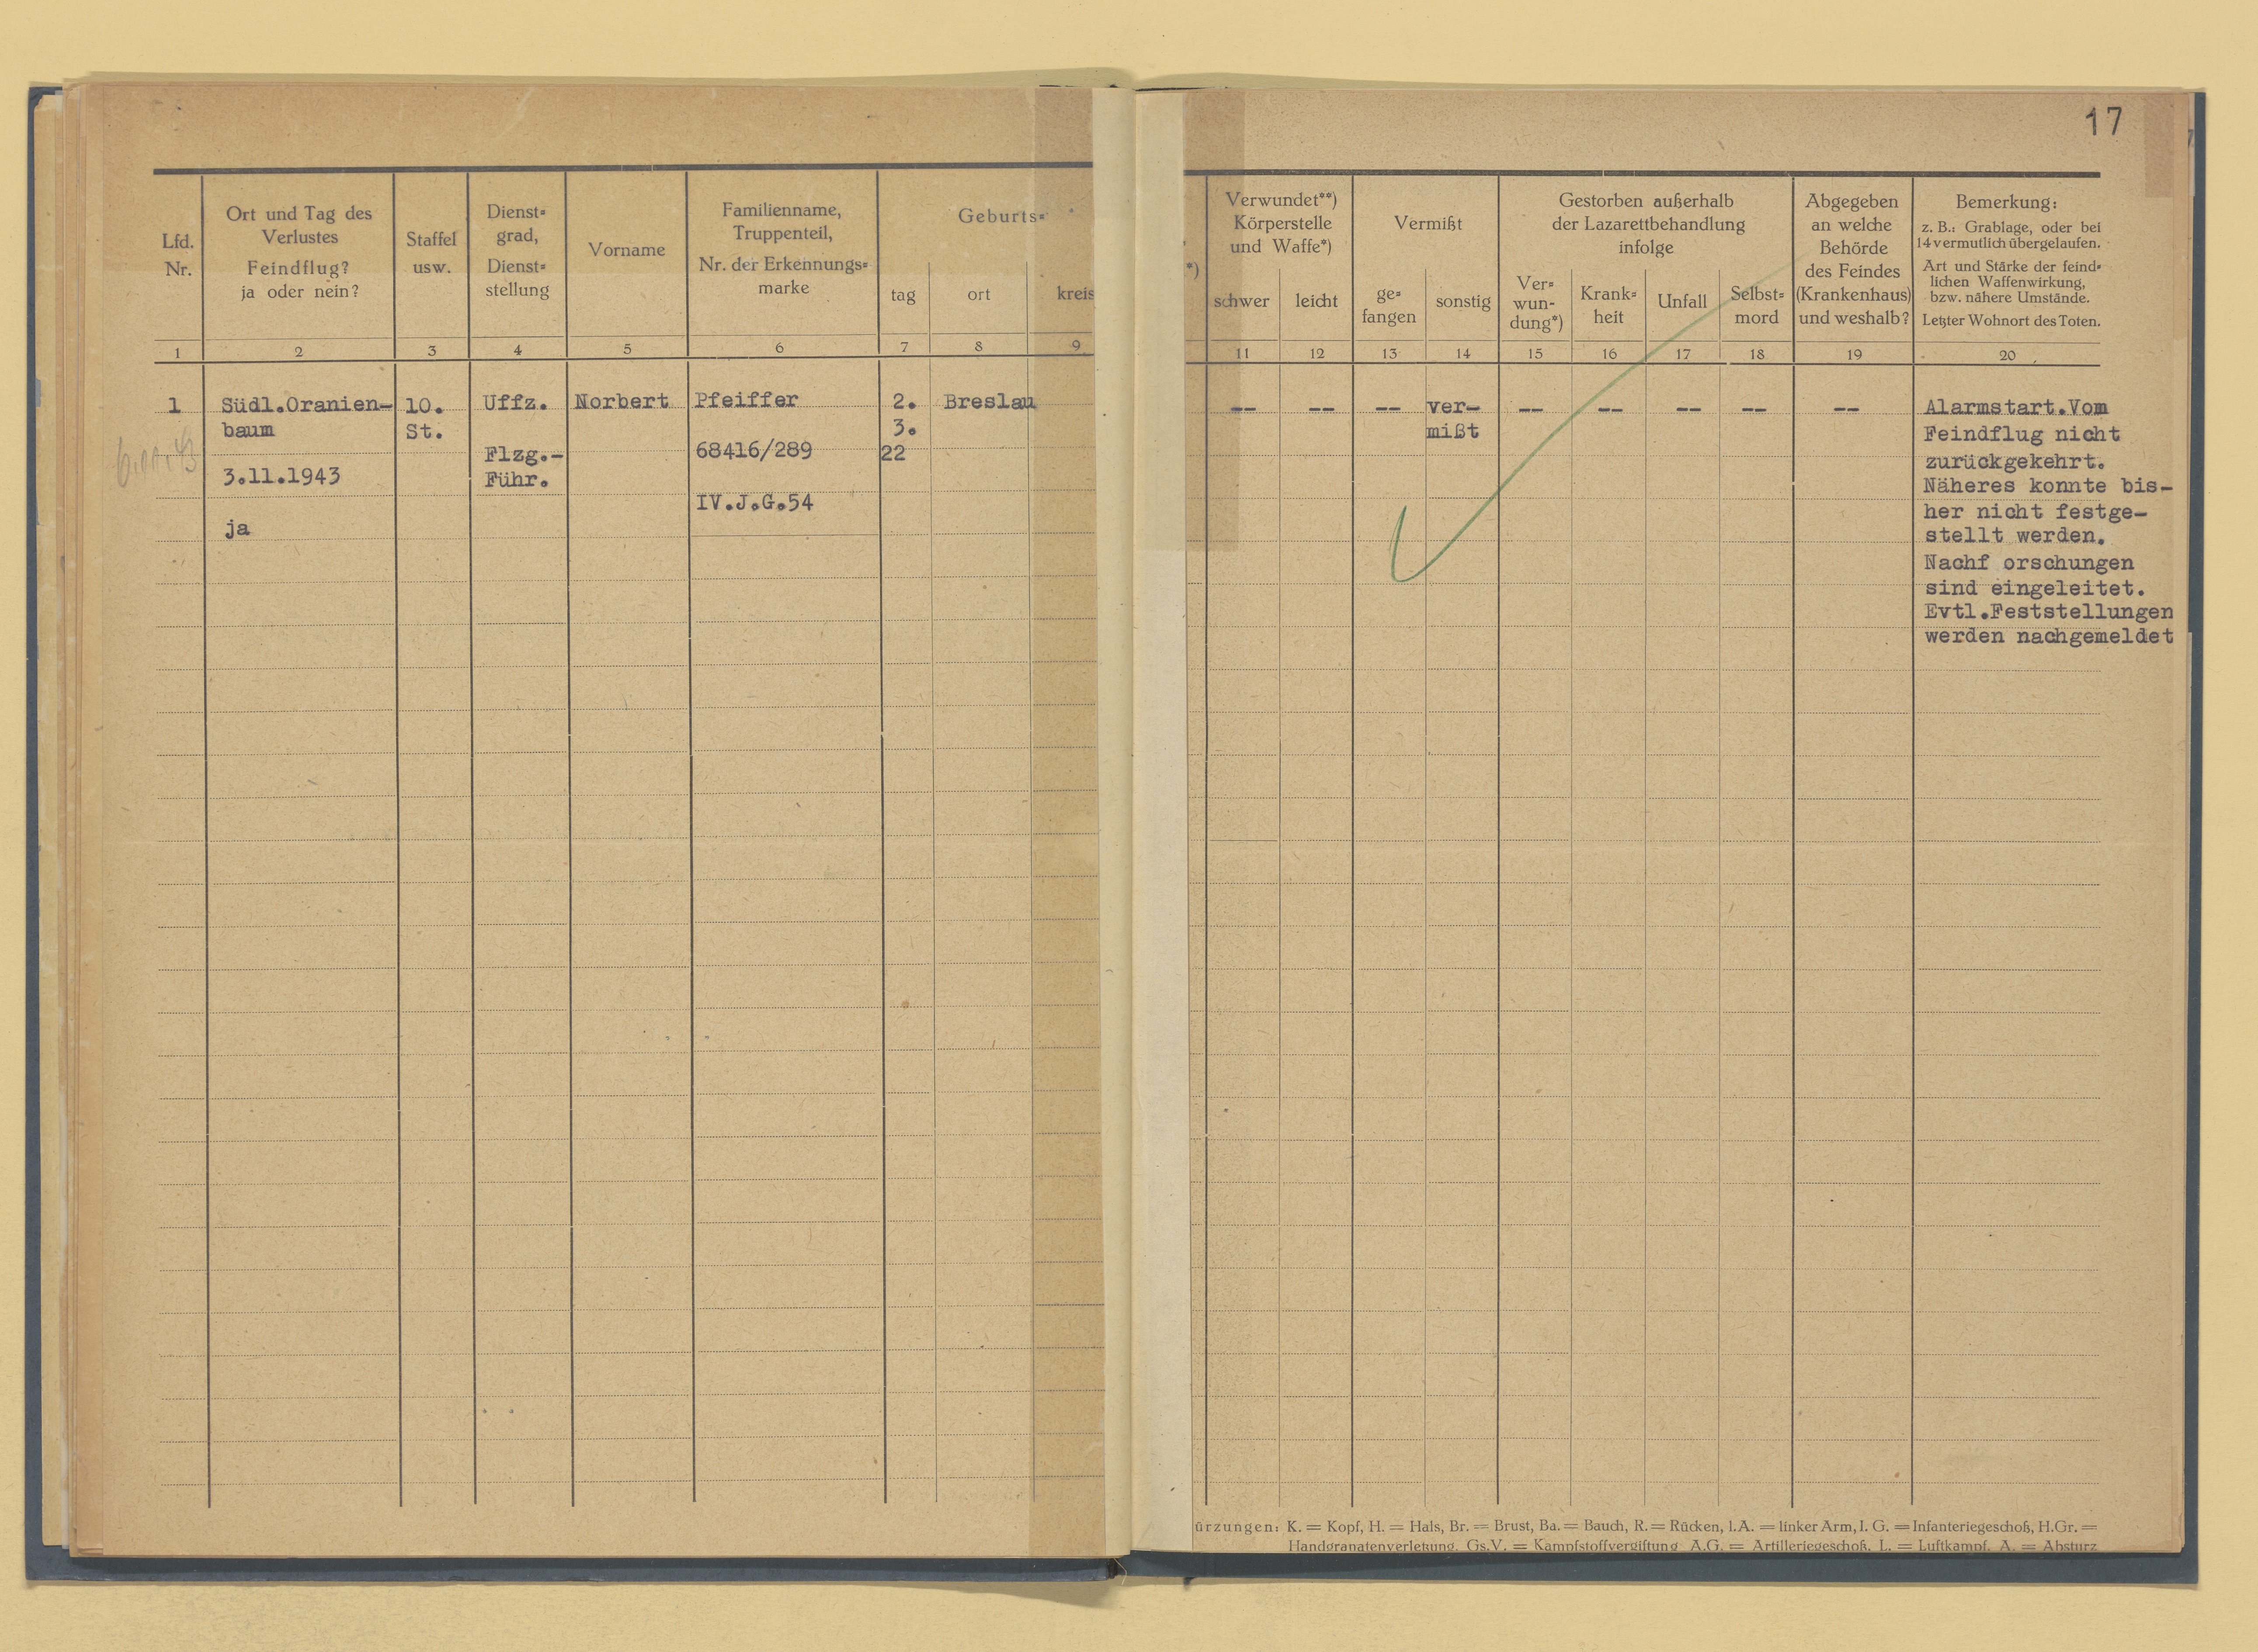 17
Lfd.
Nr.
Ort und Tag des
Verlustes
Feindflug?
ja oder nein?
Staffel
usw.
Dienst=
grad,
Dienst=
stellung
Vorname
Familienname,
Truppenteil,
Nr. der Erkennungs=
marke
Geburts=
tag
ort
kreis
*)
Verwundet**)
Körperstelle
und Waffe*)
schwer
leicht
Vermißt
ge=
fangen
sonstig
Gestorben außerhalb
der Lazarettbehandlung
infolge
Ver=
wun-
dung*)
Krank=
heit
Unfall
Selbst=
mord
Abgegeben
an welche
Behörde
des Feindes
(Krankenhaus)
und weshalb?
Bemerkung:
z. B.: Grablage, oder bei
14 vermutlich übergelaufen.
Art und Stärke der feind=
lichen Waffenwirkung,
bzw. nähere Umstände.
Letzter Wohnort des Toten.
1 2 3 4 5 6 7 8 9 11 12 13 14 15 16 17 18 19 20
1
Südl.Oranien-
baum
3.11.1943
ja
10.
St.
Uffz.
Flzg.-
Führ.
Norbert
Pfeiffer
68416/289
IV.J.G.54
2.
3.
22
Breslau
-- -- --
ver-
mißt
-- -- -- -- --
Alarmstart.Vom
Feindflug nicht
zurückgekehrt.
Näheres konnte bis-
her nicht festge-
stellt werden.
Nachf orschungen
sind eingeleitet.
Evtl.Feststellungen
werden nachgemeldet
ürzungen: K. = Kopf, H. = Hals, Br. = Brust, Ba. = Bauch, R. = Rücken, l.A. = linker Arm, I. G. = Infanteriegeschoß, H.Gr. =
Handgranatenverletzung, Gs.V. = Kampfstoffvergiftung A.G. = Artilleriegeschoß, L. = Luftkampf, A. = Absturz